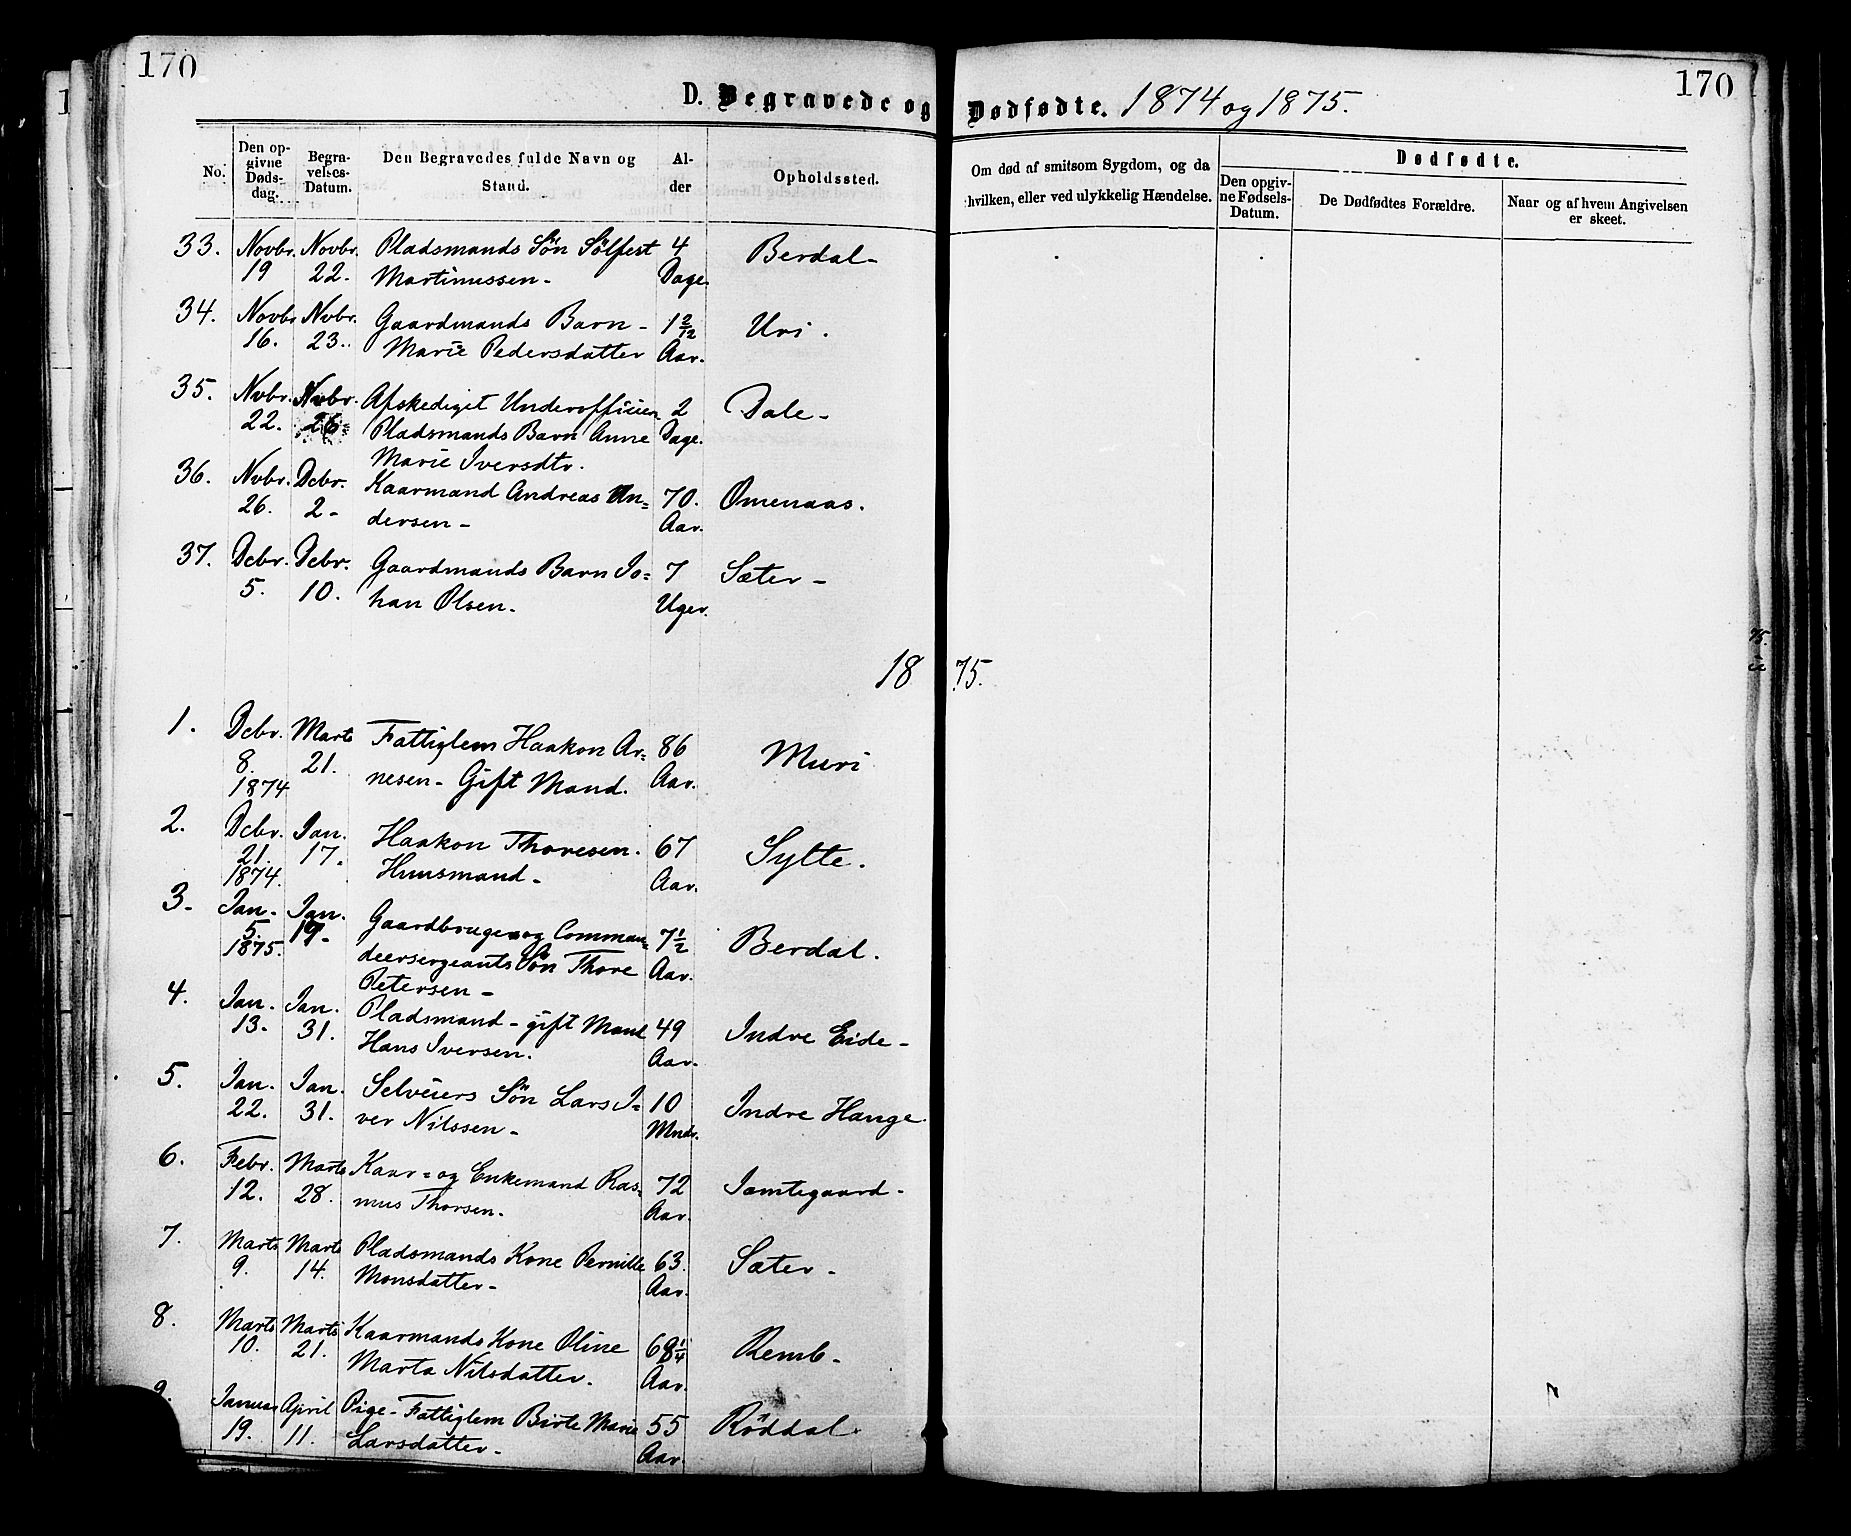 170
170
D. Begravede og Dødfødte. 1874 og 1875.
No.
Den opgivne Dødsdag.
Begravelses-Datum.
Den Begravedes fulde Navn og Stand.
Alder
Opholdssted.
Om død af smitsom Sygdom, og da hvilken, eller ved ulykkelig Hændelse.
Dødfødte.
Den opgivne Fødsels-Datum.
De Dødfødtes Forældre.
Naar og af hvem Angivelsen er skeet.
33. Novbr. Novbr. Pladsmands Sön Sölfest 4 Berdal-
19 22. Martinussen- Dage.
34. Novbr Nvbr. Gaardmands Barn- 1 2/12 Uri.
16. 23. Marie Pedersdatter Aar.
35. Nvbr. Nvbr. Afskediget Underofficier 2 Dale-
22. 26 Pladsmands Barn Anne Dage.
Marie Iversdtr.
36. Nvbr. Dcbr. Kaarmand Andreas An= 70. Omenaas.
26. 2- dersen- Aar.
37. Dcbr. Dcbr. Gaardmands Barn Jo= 7 Sæter-
5. 10. han Olsen. Uger.
1875.
1. Dcbr. Marts Fattiglem Haakon Ar= 86 Muri
8. 21. nesen- Gift Mand. Aar.
1874
2. Dcbr. Jan. Haakon Thoresen. 67 Sylte.
21. 17. Huusmand- Aar.
1874.
3. Jan. Jan. Gaardbruger og Comman= 7 1/2 Berdal.
5. 19. deersergeants Sön Thore Aar.
1875. Petersen-
4. Jan. Jan. Pladsmand- gift Mand 49 Indre Eide-
13. 31. Hans Iversen. Aar.
5. Jan. Jan. Selveiers Sön Lars I= 10 Indre Hauge.
22. 31. ver Nilssen- Mndr.
6. Febr. Marts Kaar= og Enkemand Ras= 72 Jamtegaard-
12. 28. mus Thorsen. Aar.
7. Marts Marts Pladsmands Kone Pernille 63. Sæter-
9. 14. Monsdatter- Aar.
8. Marts Marts Kaarmands Kone Oline 68 1/4 Remb-
10. 21. Marta Nilsdatter. Aar.
9. Januar April Pige- Fattiglem Birte Marie 55 Röddal.
19. 11. Larsdatter- Aar.